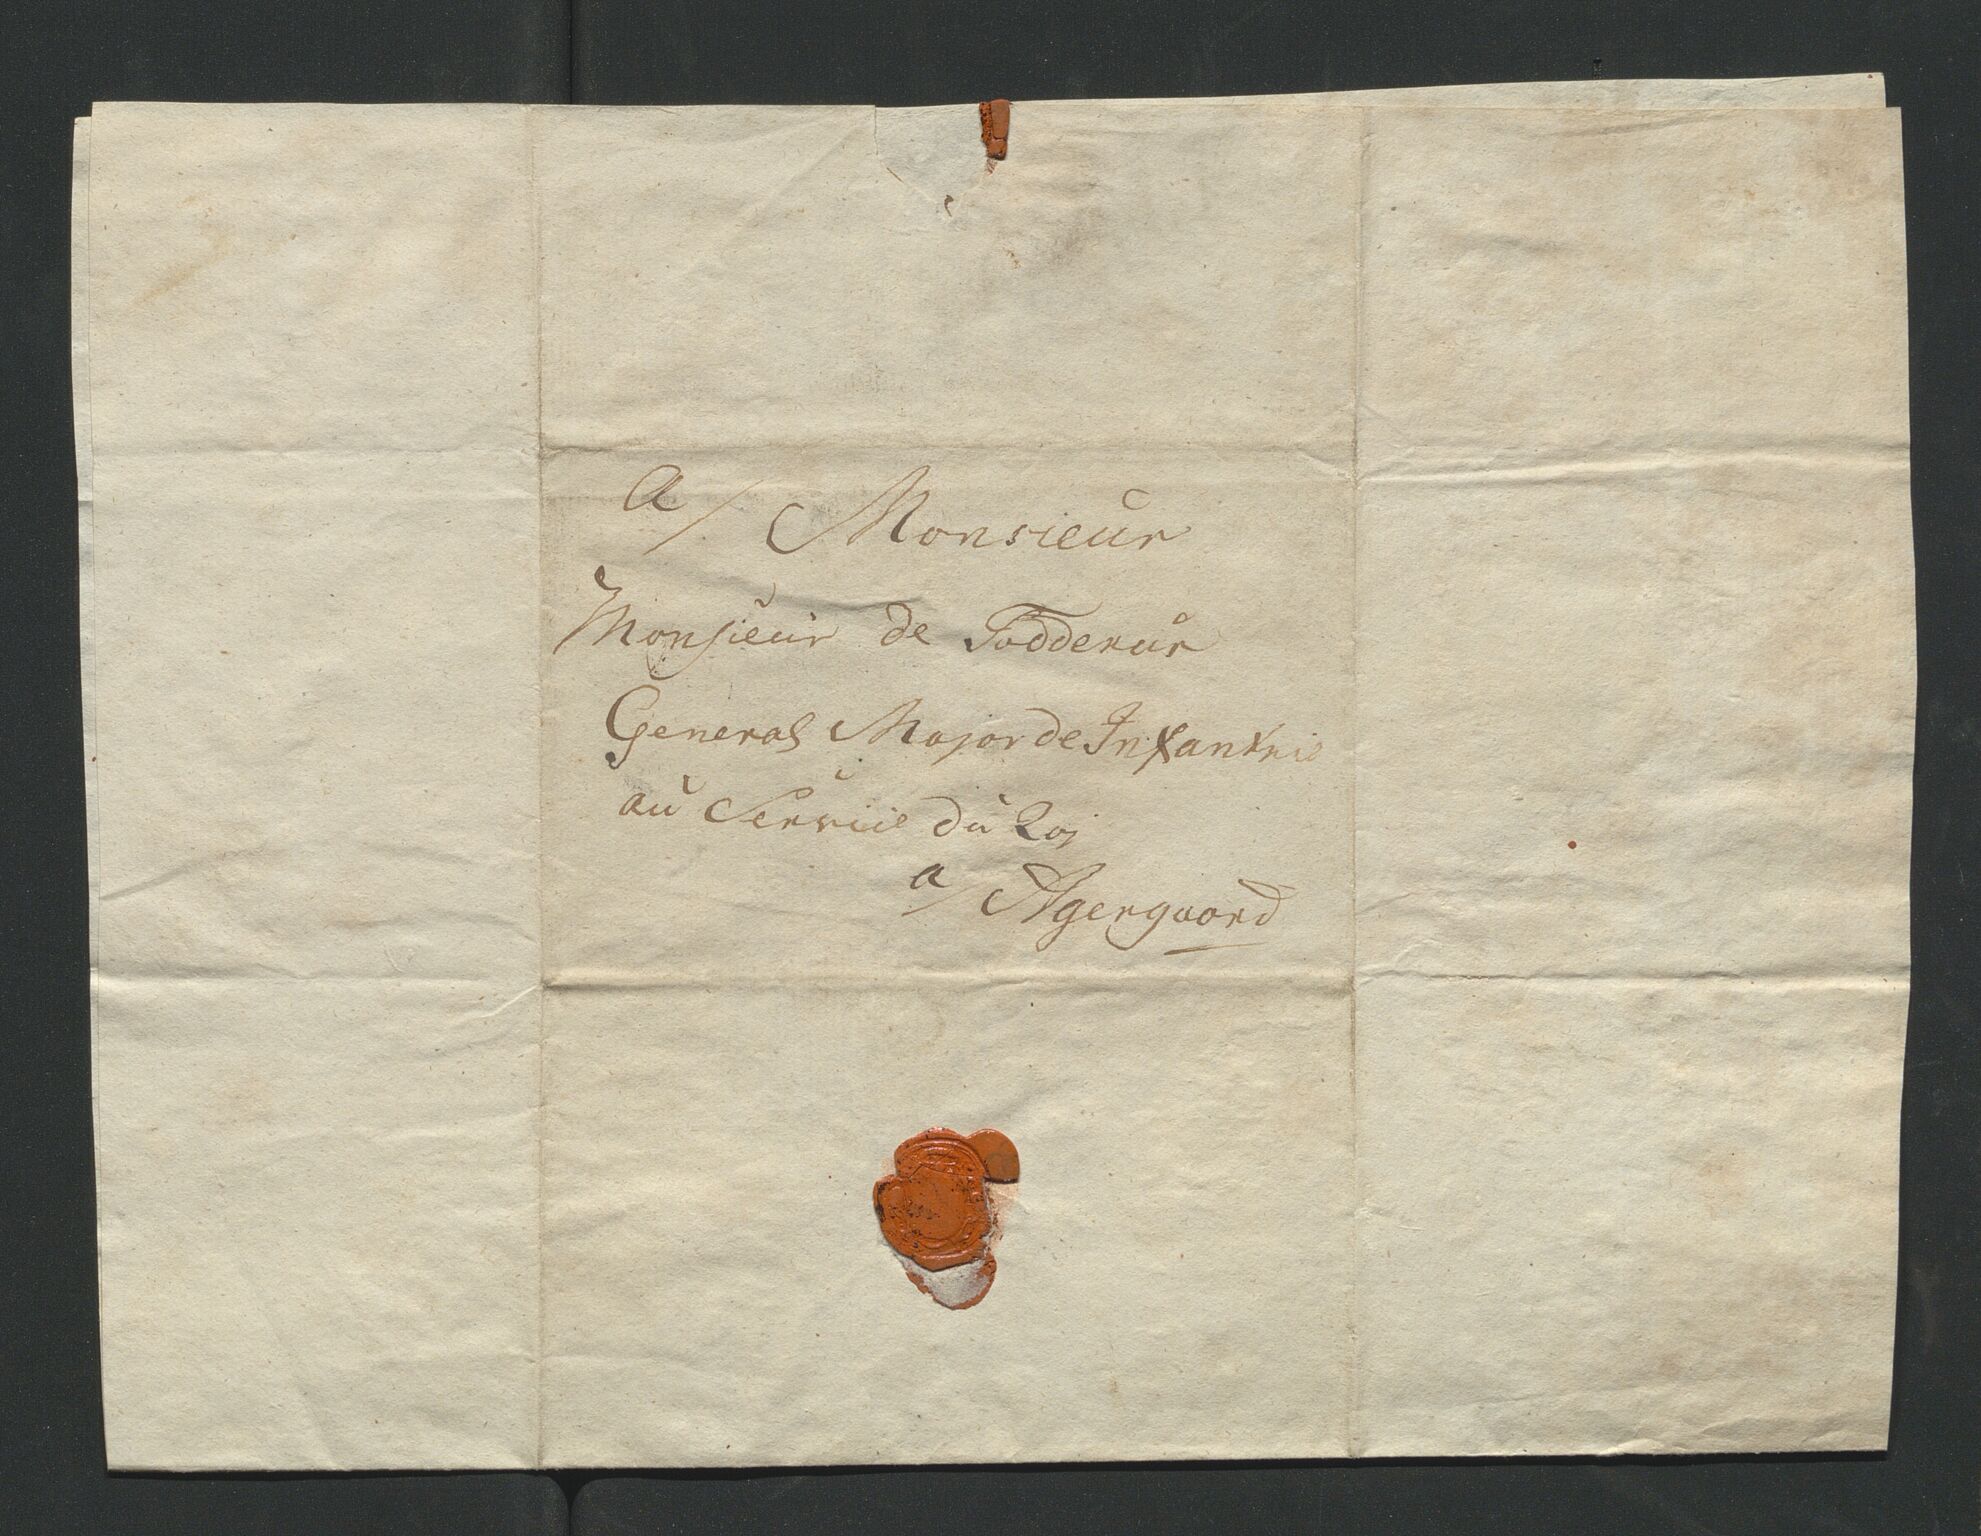 a/ Monsieur
Monsieur de Todderud
General Major de Infanterie
au Service du Roj
a/ Agergaard